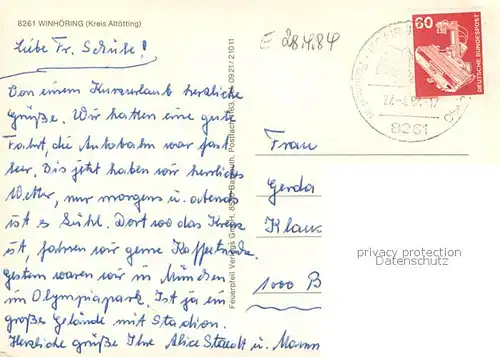 8261 WINHÖRING (Kreis Altötting)
Liebe Fr. Schulze!
Von einem Kurzurlaub herzliche
Grüße. Wir hatten eine gute
Fahrt, die Autobahn war fast
leer. Bis jetzt haben wir herrliches
Wetter, nur morgens u. abends
ist es kühl. Dort wo das Kreuz
ist, fahren wir gerne Kaffeetrinken.
Gestern waren wir in München
im Olympiapark. Ist ja ein
großes Gelände mit Stadion.
Herzliche Grüße Ihre Alice u. Mann
Feuerpfeil Verlags GmbH, 8580 Bayreuth, Postfach
0921/21011
E 28.4.84
60
DEUTSCHE BUNDESPOST
27.-4.84-17
8261
Frau
Gerda
Klaus
1000 B
privacy protection
Datenschutz